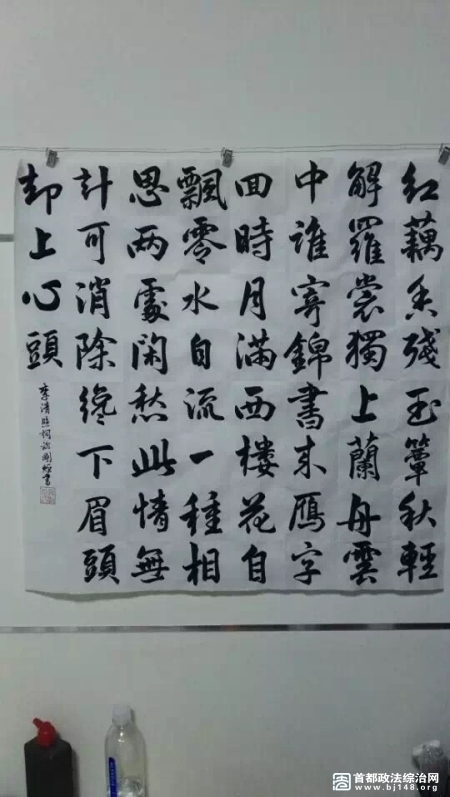 紅藕香殘玉簟秋輕
解羅裳獨上蘭舟雲
中誰寄錦書來鴈字
回時月滿西樓花自
飄零水自流一種相
思两處閑愁此情無
計可消除纔下眉頭
却上心頭
李清照詞 書
首都政法综治网
www.bj148.org